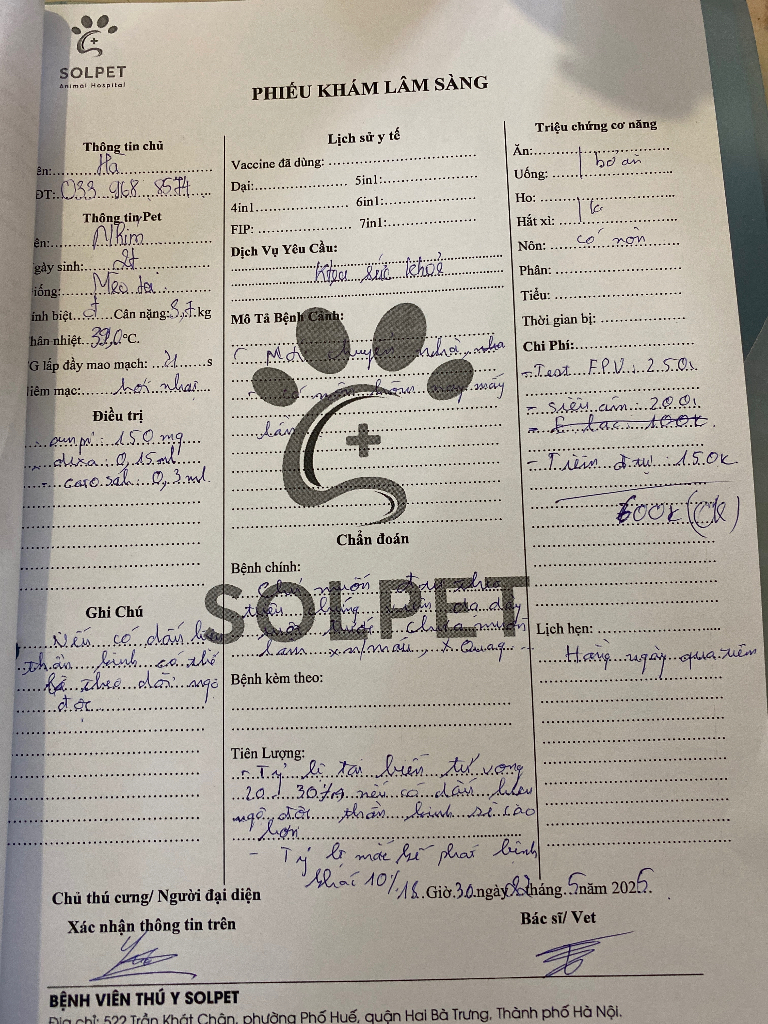 SOLPET
Animal Hospital
PHIẾU KHÁM LÂM SÀNG
Thông tin chủ
ên: Hà
ĐT: 033 968 8574
Thông tin Pet
ên: Nhím
gày sinh: 2t
iống: Mèo ta
ính biệt ♂ Cân nặng: 3,7 kg
hân nhiệt. 39,0°C.
G lấp đầy mao mạch: 21 s
iêm mạc: hơi nhạt
Điều trị
ampi: 150 mg
dexa: 0,15 ml
caro.sal: 0,3 ml
Ghi Chú
Nếu có dấu hiệu
thần kinh có thể
là theo dõi ngộ
độc
Lịch sử y tế
Vaccine đã dùng:
Dại: 5in1:
4in1 6in1:
FIP: 7in1:
Dịch Vụ Yêu Cầu:
Khám sức khoẻ
Mô Tả Bệnh Cảnh:
chuyển nhà, nhà
nôn hôm nay mấy
lần
Chẩn đoán
Bệnh chính:
Chủ muốn theo
triệu chứng viêm dạ dày
trước chưa muốn
làm xn/máu, X.Quag
SOLPET
Bệnh kèm theo:
Tiên Lượng:
- Tỷ lệ tai biến tử vong
20 - 30% nếu có dấu hiệu
ngộ độc thần kinh sẽ cao
hơn
- Tỷ lệ mắc kế phát bệnh
khác 10%
Triệu chứng cơ năng
Ăn: bỏ ăn
Uống:
Ho: k
Hắt xì:
Nôn: có nôn
Phân:
Tiểu:
Thời gian bị:
Chi Phí:
- Test FPV: 250k
- siêu âm: 200k
100k
- Tiêm đ.trị: 150k
600k (CK)
Lịch hẹn:
Hàng ngày qua tiêm
18 Giờ 30 ngày 02 tháng 5 năm 2025.
Chủ thú cưng/ Người đại diện
Xác nhận thông tin trên
Bác sĩ/ Vet
BỆNH VIỆN THÚ Y SOLPET
Địa chỉ: 522 Trần Khát Chân, phường Phố Huế, quận Hai Bà Trưng, Thành phố Hà Nội.